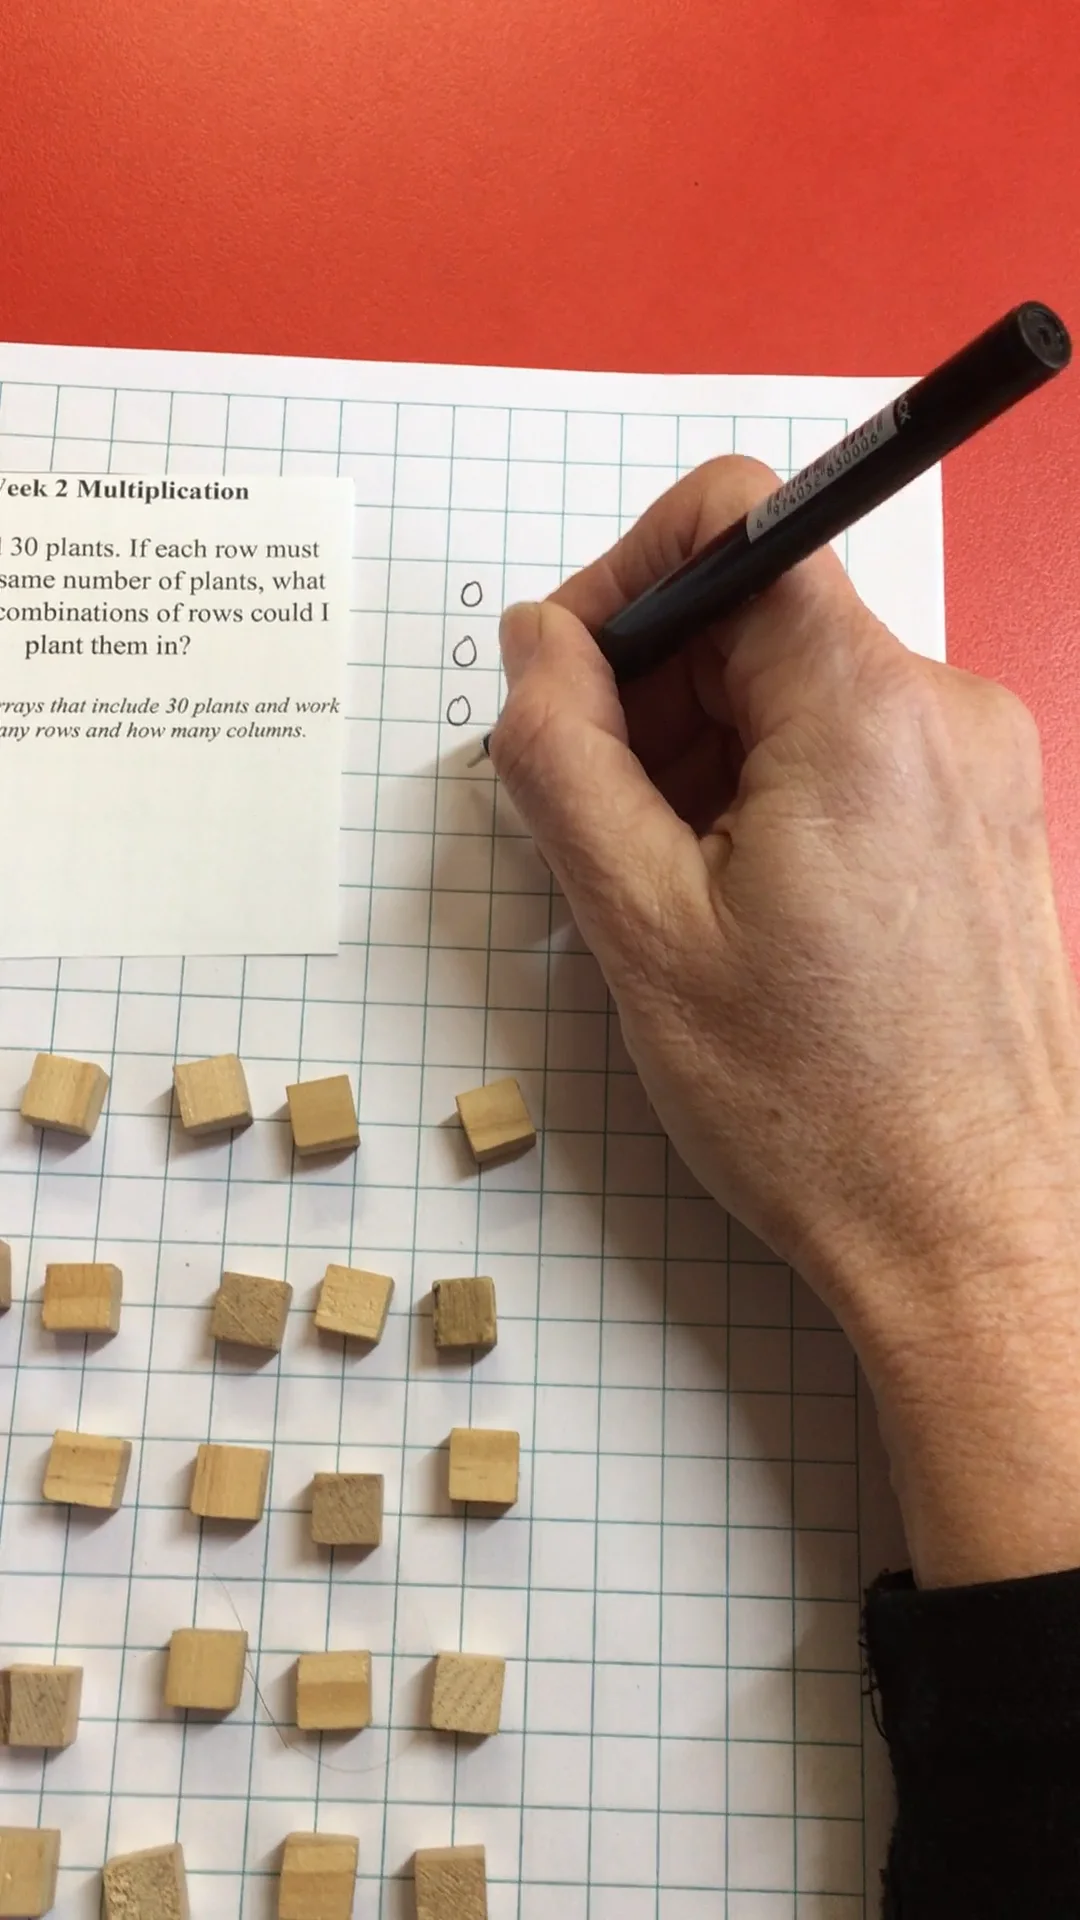 eek 2 Multiplication
30 plants. If each row must
same number of plants, what
combinations of rows could I
plant them in?
rrays that include 30 plants and work
any rows and how many columns.
O
O
O